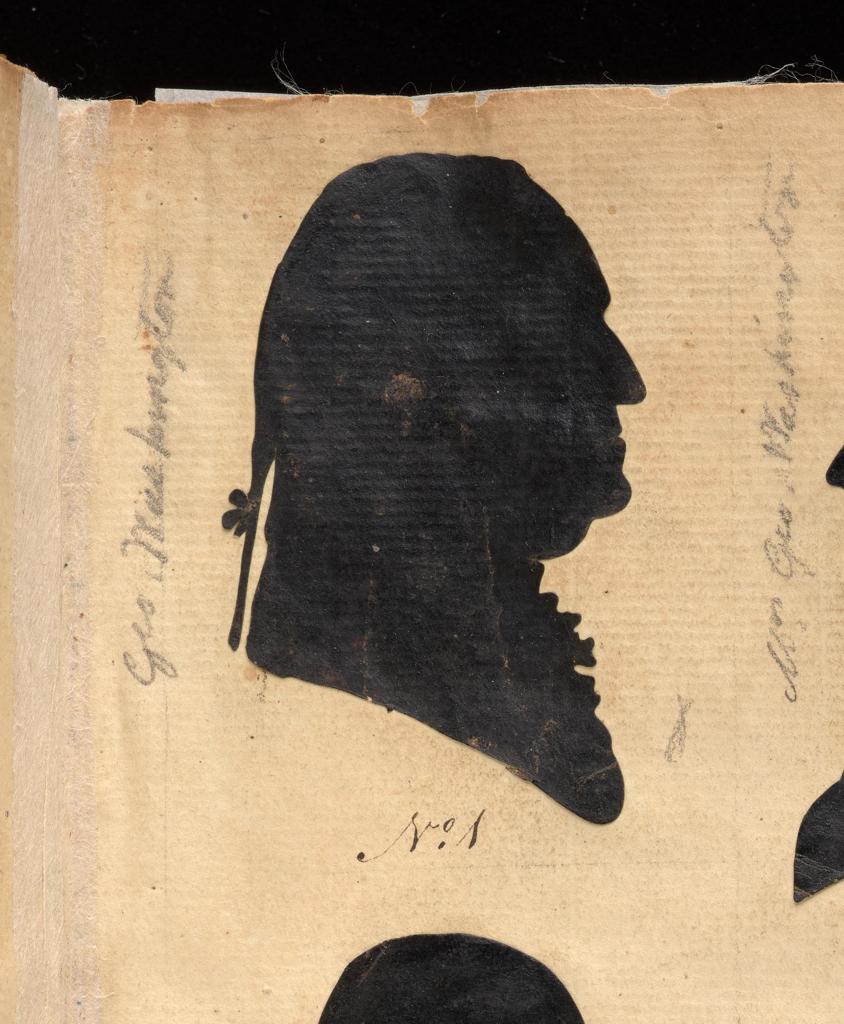 Geo Washington
Mrs Geo. Washington
No. 1